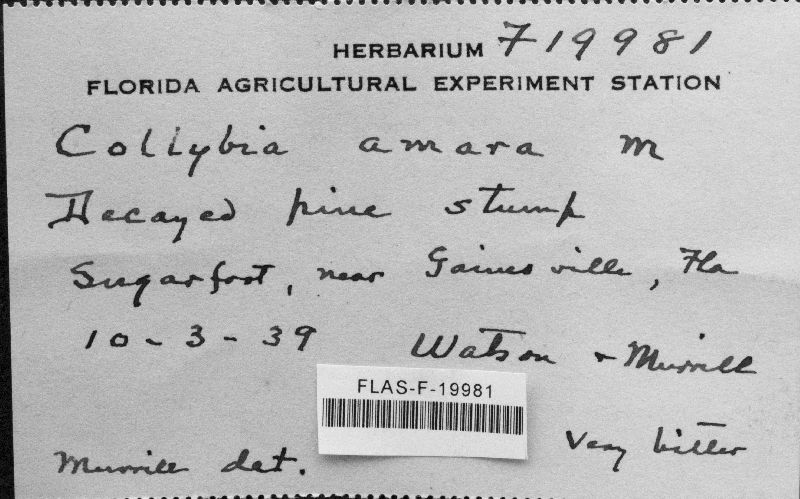 HERBARIUM F19981
FLORIDA AGRICULTURAL EXPERIMENT STATION
Collybia amara M
Decayed pine stump
Sugarfoot, near Gainesville, Fla
10-3-39 Watson + Murrill
FLAS-F-19981
Very bitter
Murrill det.